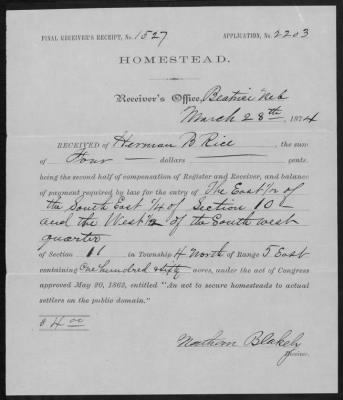 FINAL RECEIVER'S RECEIPT, No. 1527 APPLICATION, No. 2203
HOMESTEAD.
Receiver's Office, Beatrice Neb
March 28th, 1874
RECEIVED of Herman B Rice, the sum
of Four — dollars — cents,
being the second half of compensation of Register and Receiver, and balance
of payment required by law for the entry of The East 1/2 of
the South East 1/4 of Section 10
and the West 1/2 of the South west
quarter
of Section 11 in Township 4 North of Range 5 East
containing One hundred & Sixty acres, under the act of Congress
approved May 20, 1862, entitled "An act to secure homesteads to actual
settlers on the public domain."
$ 4 00
Nathan Blakely
Receiver.